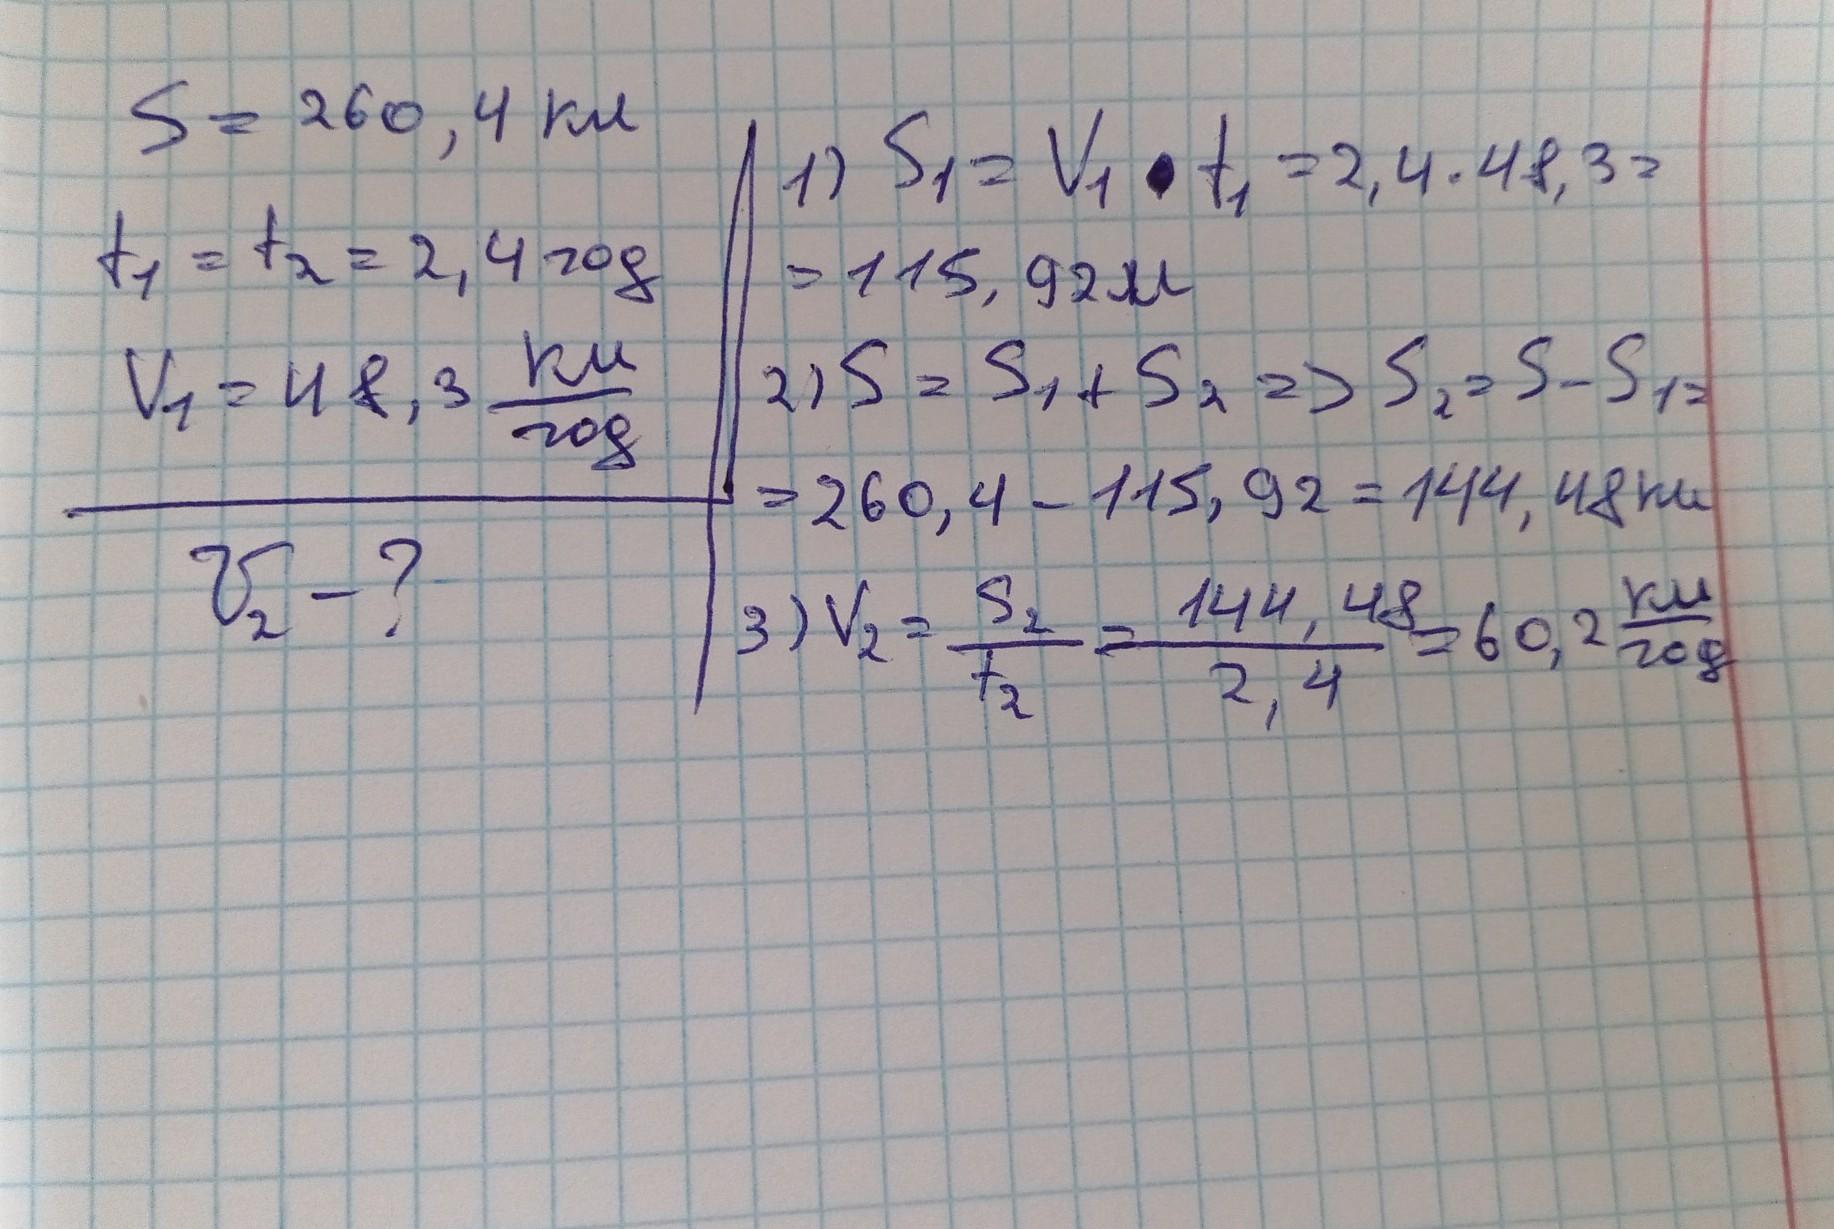 S = 260,4 км
t₁ = t₂ = 2,4 год
V₁ = 48,3 км/год
V₂ - ?
1) S₁ = V₁ • t₁ = 2,4 · 48,3 =
= 115,92 м
2) S = S₁ + S₂ => S₂ = S - S₁ =
= 260,4 - 115,92 = 144,48 км
3) V₂ = S₂/t₂ = 144,48/2,4 = 60,2 км/год